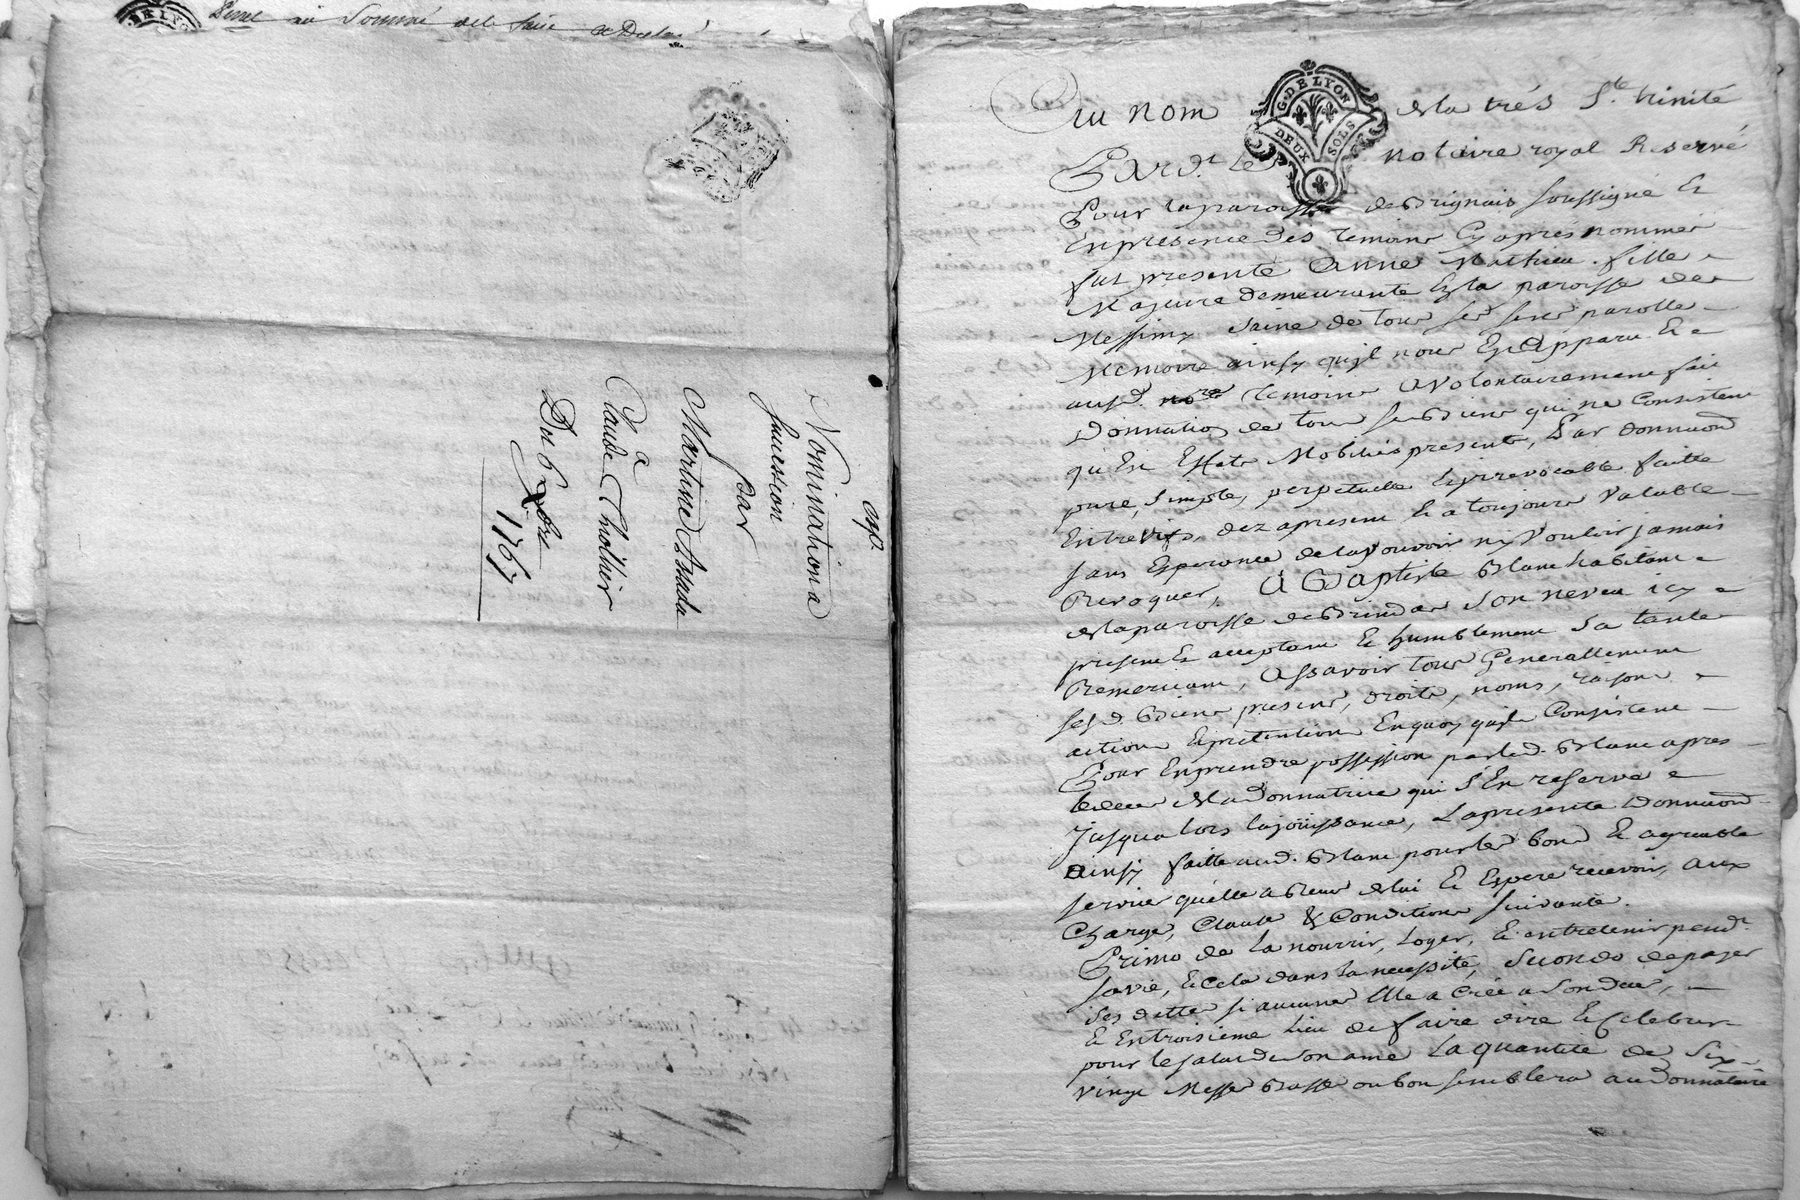 DE LYON
au Sommé
exp.
Nomination a
sucession
par
Martine
a
Claude Thollier
Du 6 Xbre
1767
Au nom de la trés Ste. trinité
G. DE LYON
DEUX SOLS
Pard.t Le notaire royal Reservé
Pour la paroisse de Brignais soussigné Et
En presence des temoins Cy aprés nommés
fut presente Anne Mathieu fille
Majeure demeurante En la paroisse de
Messimy Saine de tous ses sens parolle
Memoire ainsy qu'jl nous Est Apparu Et
ausd. temoins A volontairement fait
Donnation de tous ses Biens qui ne Consistent
qu'En Effets Mobiliers presents, Par donnaon
pure, simple, perpetuelle Et jrrevocable faitte
Entre vifs, dez apresent Et a toujours Valable
sans Esperance de la pouvoir ny Vouloir jamais
Revoquer, A Baptiste Blanc habitant
de la paroisse de Brindas Son neveu icy
present Et acceptant Et humblement Sa tante
Remerciant, Assavoir tous Generallement
sesd. Biens presens, droits, noms, raisons
actions Et pretentions En quoy qu'jls Consistent
Pour En prendre possession par led. Blanc apres
le deces de la donnatrice qui s'En reserve
jusqu'alors la joüissance, La presente Donnaon
ainsy faitte aud. Blanc pour les bons Et agreable
services qu'elle a Receus de lui Et Espere recevoir, aux
Charges, Clauses & Conditions suivante.
Primo de La nourrir, Loger, Et entretenir pend.t
sa vie, Et Cela dans la necessité, Secondo de payer
Ses dettes si aucunes Elle a Créé a Son deces,
Et En troisieme lieu de faire dire Et Celebrer
pour le salut de Son ame La quantité de Six
vingt Messes Basses ou bon semblera au donnataire